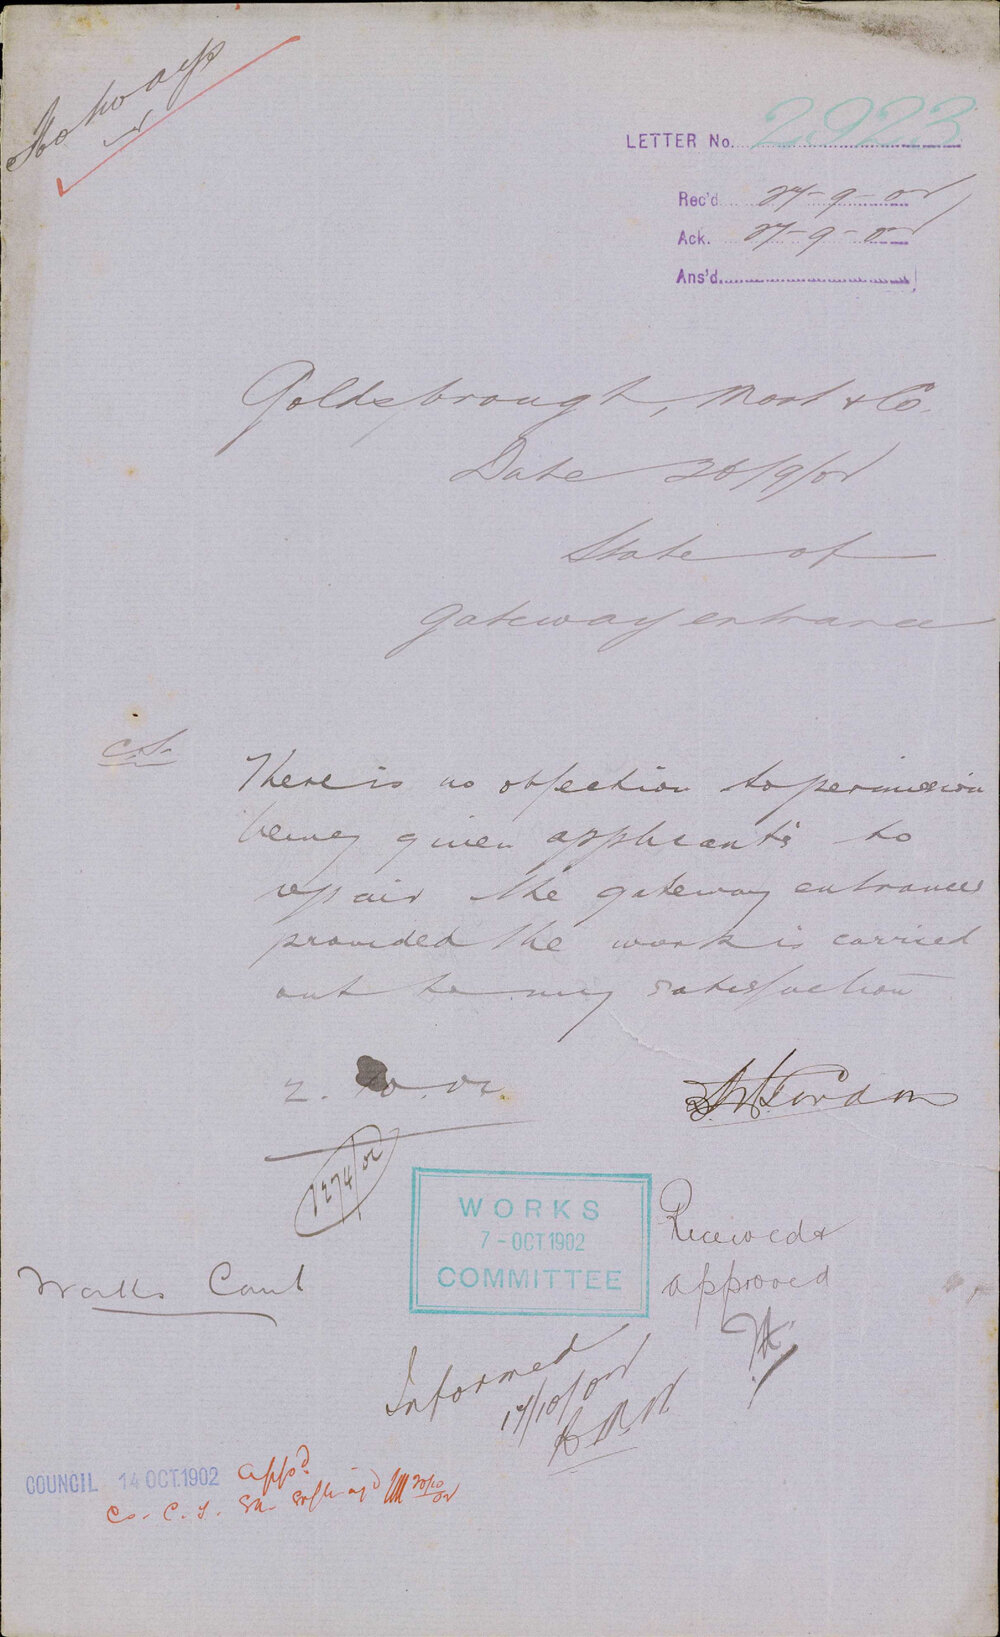 LETTER No. 2923
Rec'd 27-9-02
Ack. 27-9-02
Ans'd
Goldsbrough, Mort & Co.
Date 26/9/02
State of
gateway entrance
C.S.
There is no objection to permission
being given applicants to
repair the gateway entrances
provided the work is carried
out to my satisfaction
2. 10. 02.
1274/02
WORKS
7 - OCT 1902
COMMITTEE
Received &
approved
Works Comt
Informed
17/10/02
COUNCIL 14 OCT. 1902 App'd
Co. C. S.
20/10/02